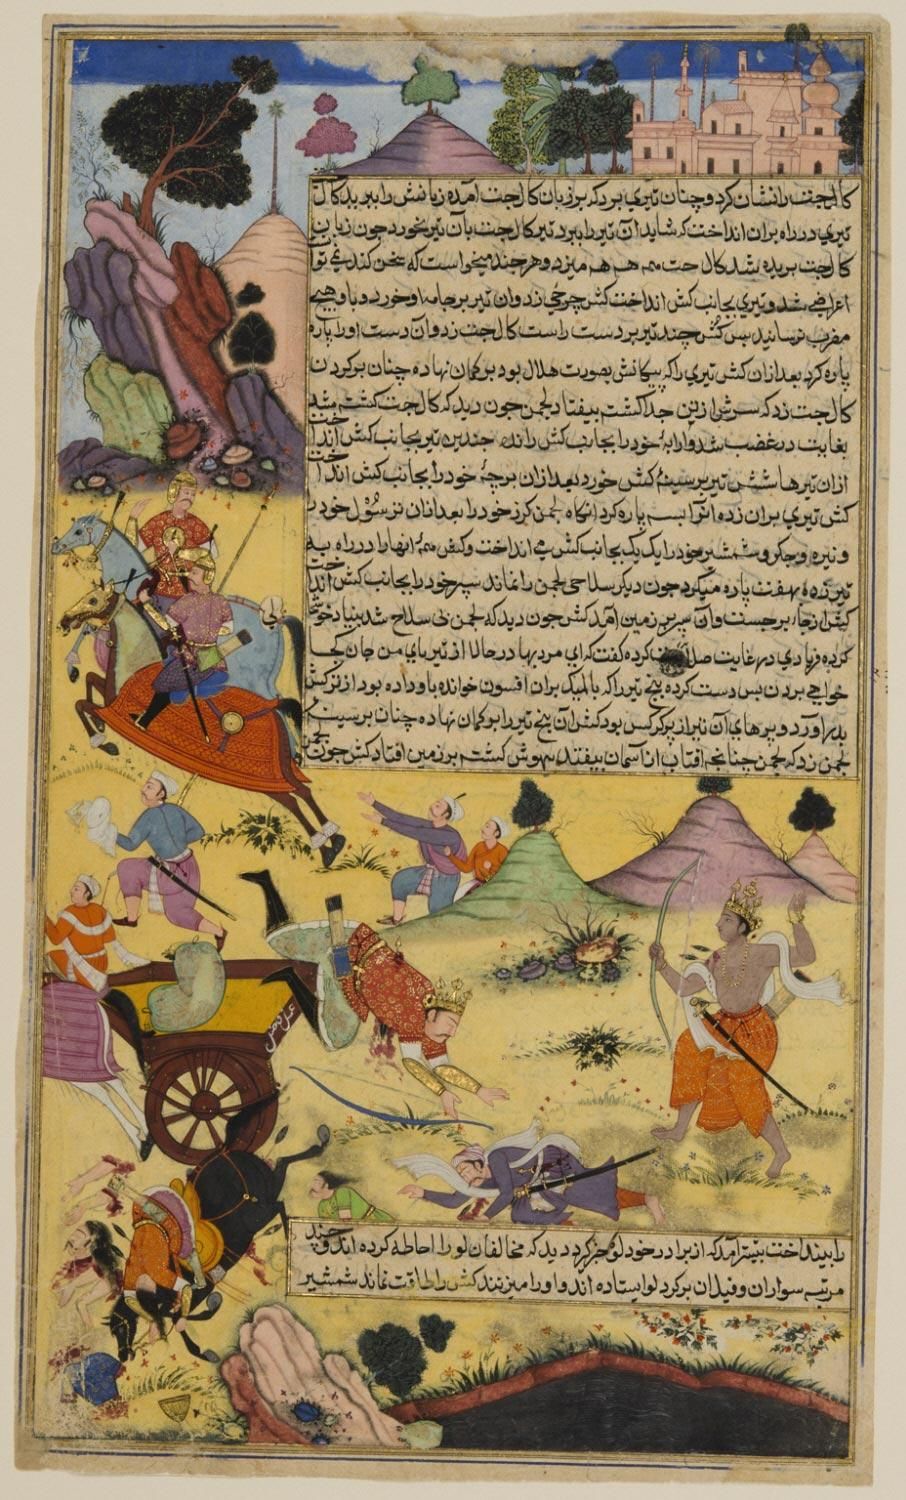 کالجت را نشان کرد و چنان تیری بزد که بر زبان کالجت آمده زبانش را ببرید کال
تیری در راه بران انداخت که شاید آن تیر را ببرد تیر کالجت بآن تیر نخورد چون زبان
کالجت بریده شد کالجت همه هم هم میزد و هر چند میخواست که سخن کند
شد و تیری بجانب کش انداخت کش چرخی زد و آن تیر بر جامه او خورد و باو هیچ
نرسانید پس کش چند تیر بر دست راست کالجت زد و آن دست او را پاره
پاره کرد بعد ازان کش تیری را که پیکانش بصورت هلال بود بر کمان نهاده چنان بر کردن
کالجت زد که سرش از تن جدا گشته بیفتاد لجمن چون دید که کالجت کشته شد
بغایت در غضب شد و ارابه خود را بجانب کش رانده چندین تیر بجانب کش انداخت
ازان تیرها شش تیر بر سینه کش خورد بعد ازان برچه خود را بجانب کش انداخت
کش تیری بران زده آنرا پاره کرد آنگاه لجمن کرز خود را بعد ازان ترسول خود را
و نیزه و چکر و شمشیر خود را یک یک بجانب کش می انداخت و کش همه آنها را در راه به
تیر زده هفت پاره میکرد چون دیکر سلاحی لجمن را نماند سپر خود را بجانب کش انداخت
کش از جا برجست و آن سپر بر زمین آمد کش چون دید که لجمن بی سلاح شد بنیاد
کرده فریادی در غایت کرده گفت که ای مرد بهادر حالا از تیرهای من جان کجا
خواهی بردن پس دست کرده پنج تیر را که بالمیک بران افسون خوانده باو داده بود از ترکش
بدر آورد و پرهای آن تیر از پر کرکس بود کش آن پنج تیر را بر کمان نهاده چنان بر سینه
لجمن زد که لجمن چنانچه آفتاب از آسمان بیفتد بیهوش گشته بر زمین افتاد کش چون لجمن
را بینداخت پیشتر آمد که از برادر خود لو خبر گیرد دید که مخالفان لو را احاطه کرده اند و چند
مرتبه سواران و فیلان بر کرد لو ایستاده اند و او را میزنند کش را طاقت نماند شمشیر